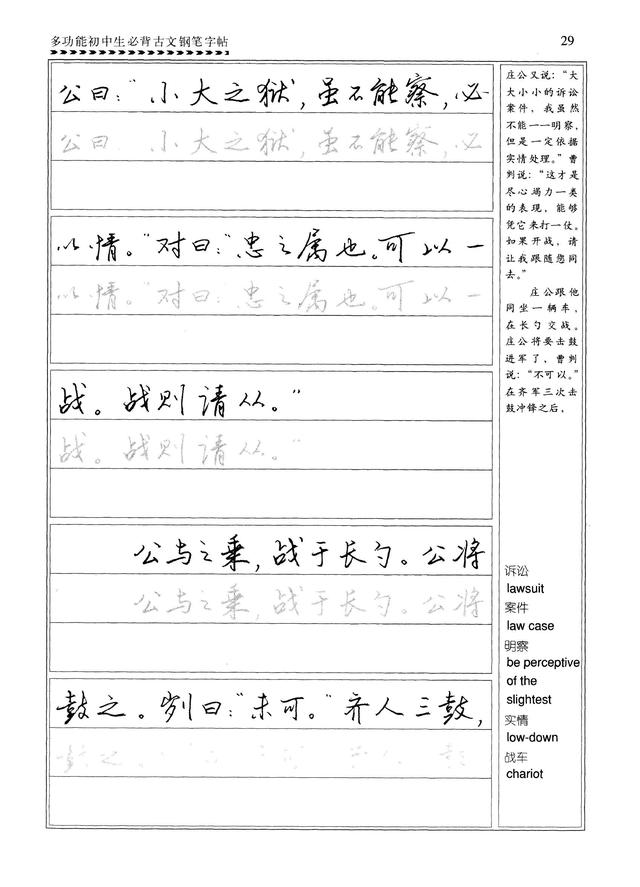 多功能初中生必背古文钢笔字帖
29
公曰：“小大之狱，虽不能察，必
公曰　小大之狱，虽不能察，必
以情。”对曰：“忠之属也。可以一
以情。”对曰：“忠之属也。可以一
战。战则请从。”
战。战则请从。”
公与之乘，战于长勺。公将
公与之乘，战于长勺。公将
鼓之。刿曰：“未可。”齐人三鼓，
庄公又说：“大
大小小的诉讼
案件，我虽然
不能一一明察，
但是一定依据
实情处理。”曹
刿说：“这才是
尽心竭力一类
的表现，能够
凭它来打一仗。
如果开战，请
让我跟随您同
去。”
庄公跟他
同坐一辆车，
在长勺交战。
庄公将要击鼓
进军了，曹刿
说：“不可以。”
在齐军三次击
鼓冲锋之后，
诉讼
lawsuit
案件
law case
明察
be perceptive
of the
slightest
实情
low-down
战车
chariot